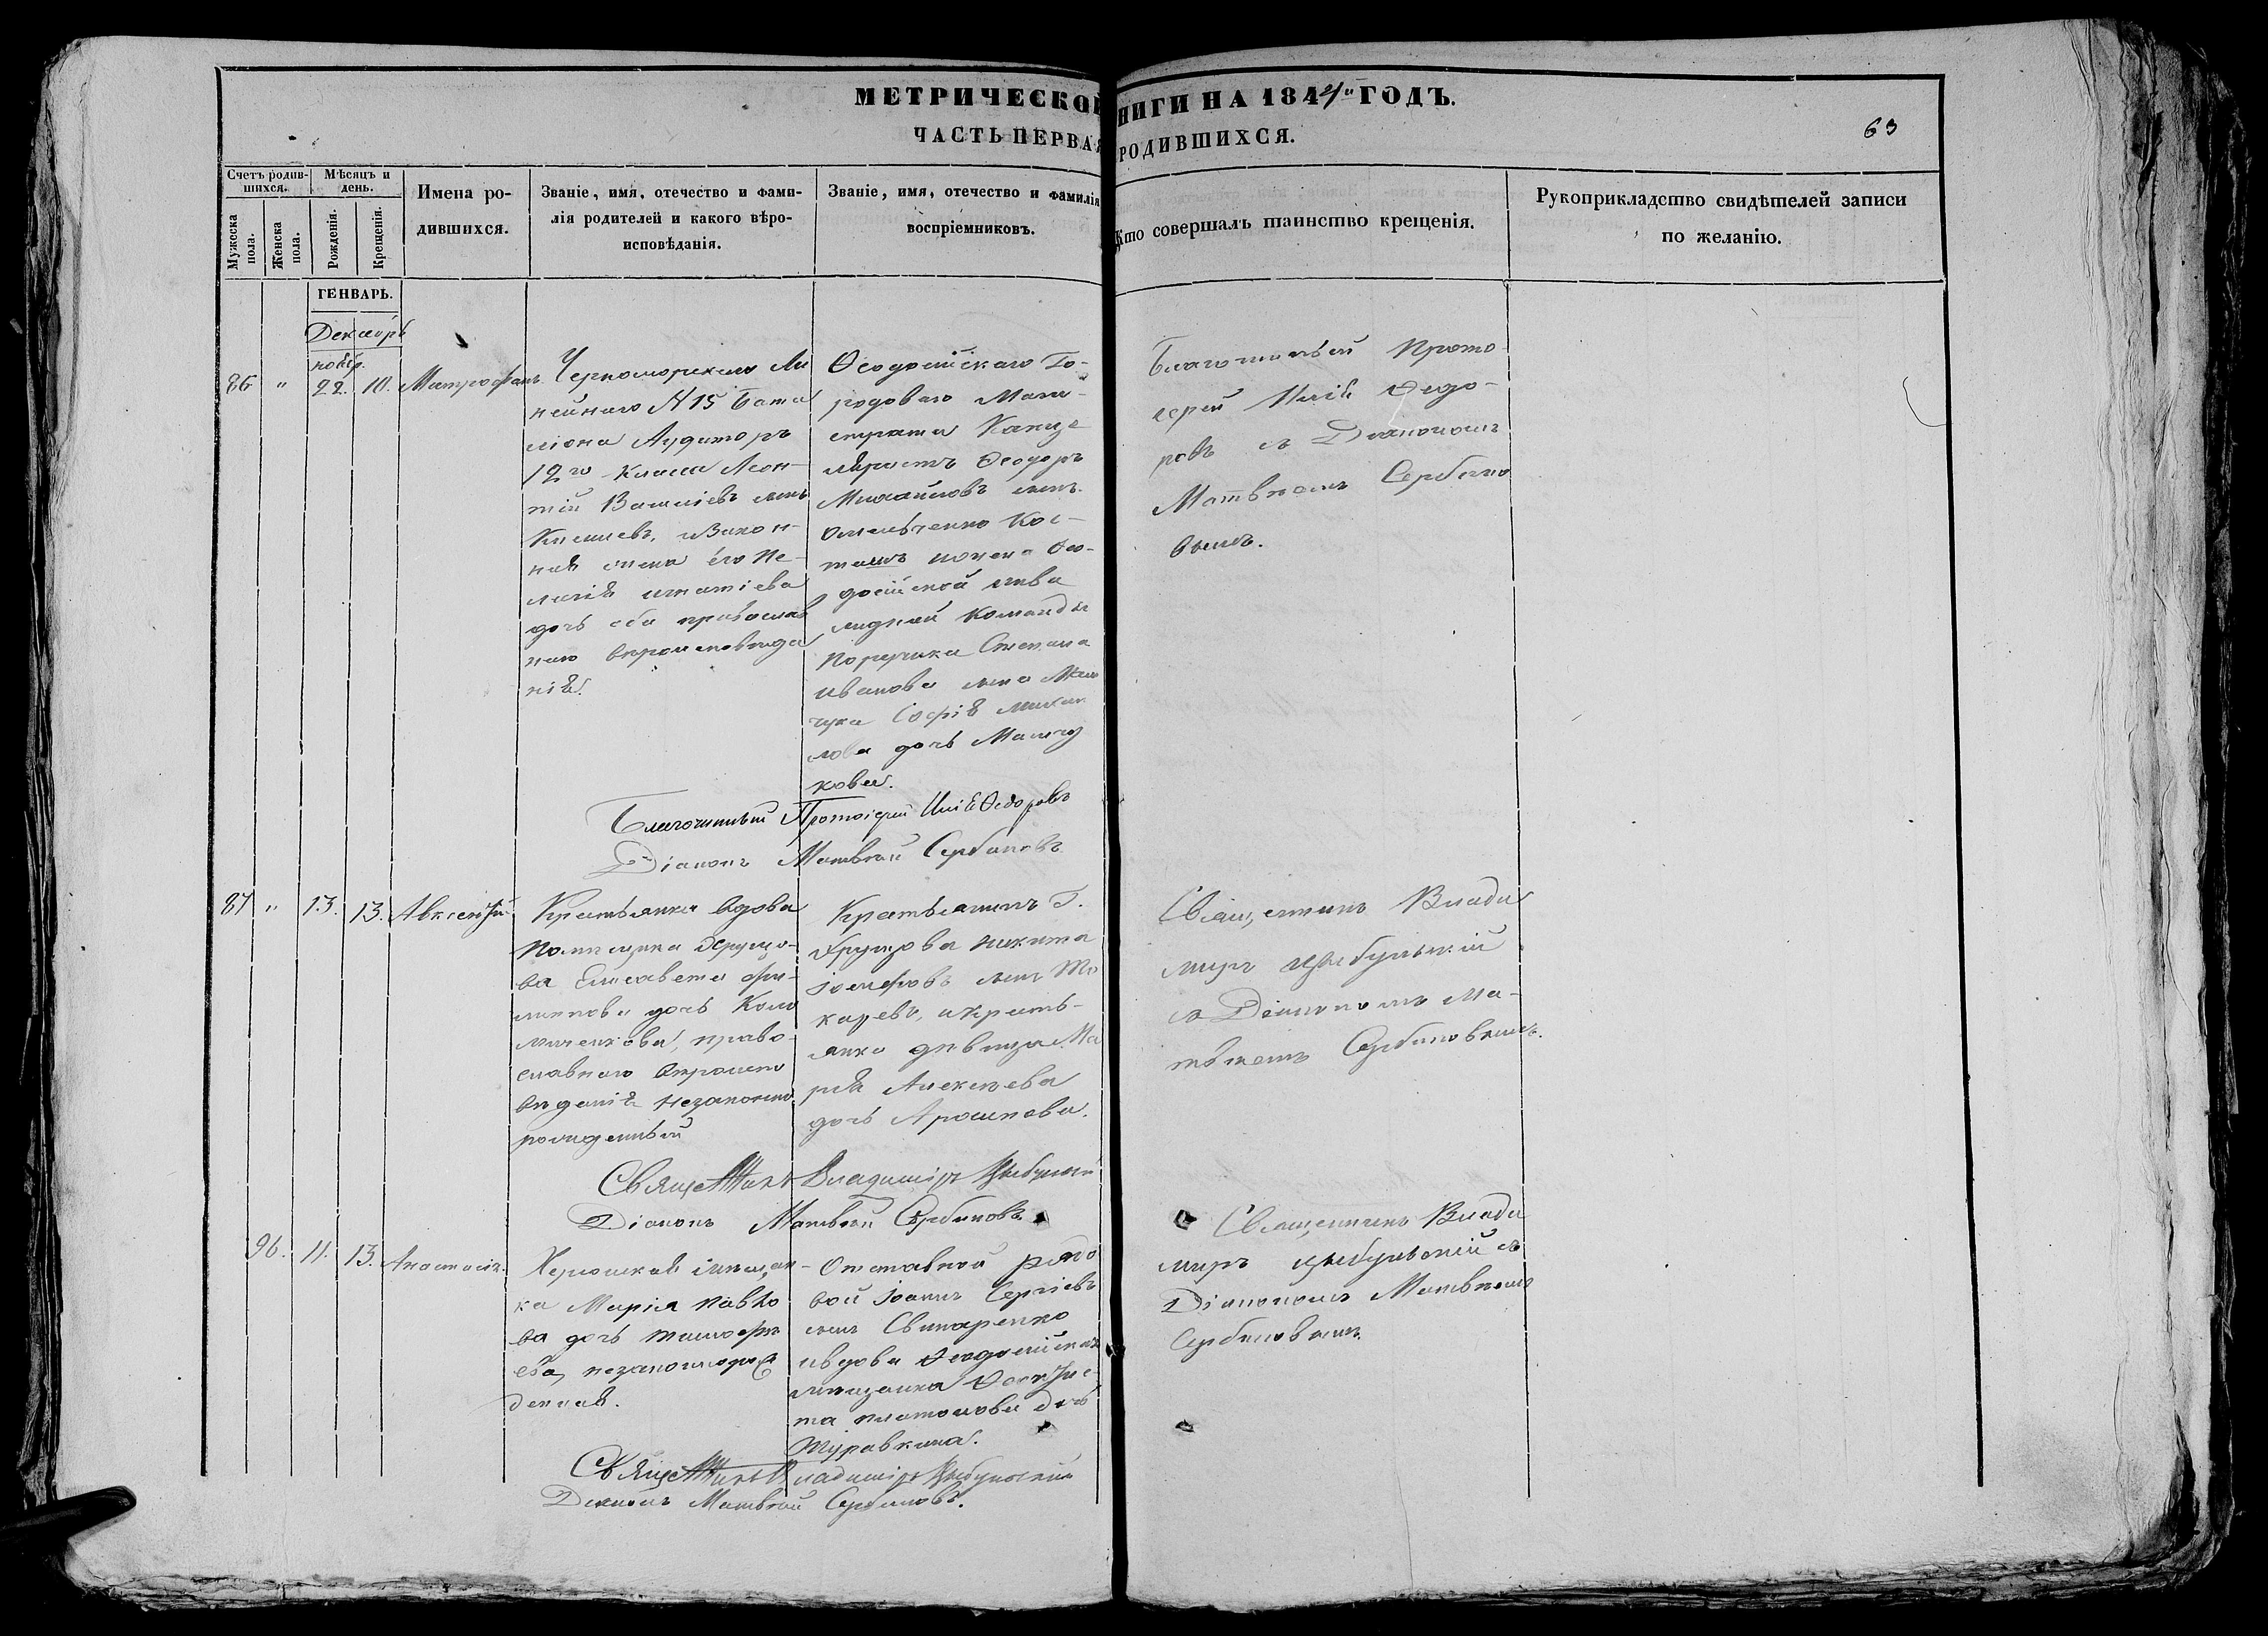 МЕТРИЧЕСКОЙ
НИГИ НА 184 ГОДЪ.
ЧАСТЬ ПЕРВАЯ
РОДИВШИХСЯ.
63
Счетъ родив-
шихся.
Мѣсяцъ и
день.
Мужеска
пола.
Женска
пола.
Рожденія.
Крещенія.
Имена ро-
дившихся.
Званіе, имя, отечество и фами-
лія родителей и какого вѣро-
исповѣданія.
Званіе, имя, отечество и фамилія
воспріемниковъ.
Кто совершалъ таинство крещенія.
Рукоприкладство свидѣтелей записи
по желанію.
ГЕНВАРЬ.
Декабрь
ноябр.
86 " 22. 10. Митрофанъ
Черноморскаго Ли
нейнаго N 15 Бата
ліона Аудиторъ
12го класса Леон-
тій Василіевъ сынъ
законная
жена его Пе-
лагія Игнатіева
дочь оба православ
наго вѣроисповѣда
нія.
Ѳеодосійскаго Го-
родоваго Маги-
страта Канце
ляристъ Ѳеодоръ
Михайловъ сынъ
Омельченко
жена Ѳео-
досійской инва
лидной команды
Поручика Степана
Иванова сына
Софія Михаи
лова дочь
кова.
Благочинный Прото
іерей Илія Ѳедо-
ровъ съ Діакономъ
Матвѣемъ Сербино
вымъ.
Благочинный Протоіерей Илія Ѳедоровъ
Діаконъ Матвѣй Сербиновъ
87 " 13. 13. Авксентій
Крестьянка вдова
помѣщика
Елисавета Фи-
липпова дочь Коло
право-
славнаго вѣроиспо
вѣданія незаконно
рожденный
Крестьянинъ Г.
Никита
Іосифовъ сынъ То
каревъ, и кресть-
янка дѣвица Ма
рія Алексѣева
дочь Аросинова.
Священникъ Влади
миръ Цыбульскій
съ Діакономъ Ма-
твѣемъ Сербиновымъ.
Священникъ Владиміръ Цыбульскій
Діаконъ Матвѣй Сербиновъ
96. 11. 13. Анастасія.
Херсонская мѣщан-
ка Марія Павло
ва дочь Тимофѣ
ева, незаконнорож
денная.
Отставной рядо
вой Іоаннъ Сергіевъ
сынъ Свинаренко
и вдова Ѳеодосійская
мѣщанка Ѳеоктис
та Платонова дочь
Журавкина.
Священникъ Влади
миръ Цыбульскій съ
Діакономъ Матвѣемъ
Сербиновымъ.
Священникъ Владиміръ Цыбульскій
Діаконъ Матвѣй Сербиновъ.